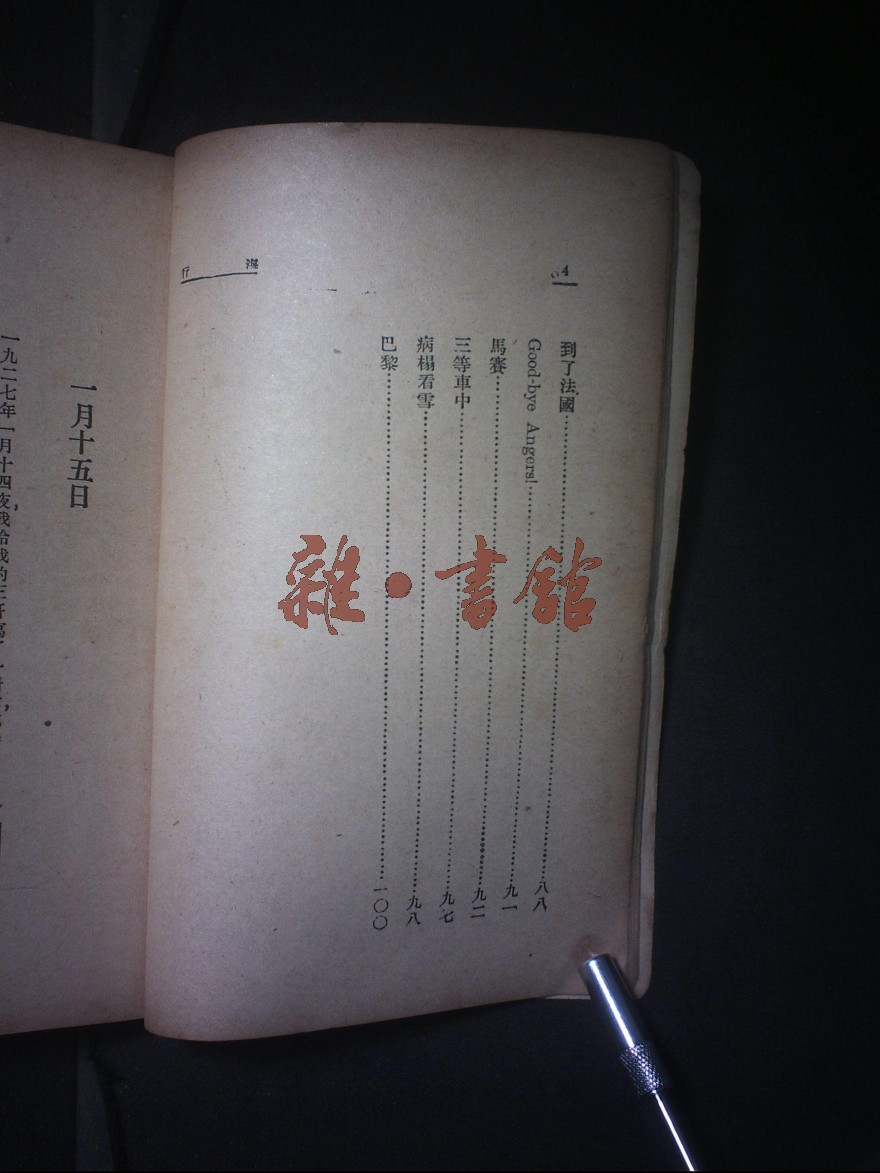 4
海行
到了法國……八八
Good-bye Angers!……九一
馬賽……九二
三等車中……九七
病榻看雪……九八
巴黎……一〇〇
一月十五日
一九二七年一月十四夜,我給我的三哥寫了一
雜·書館